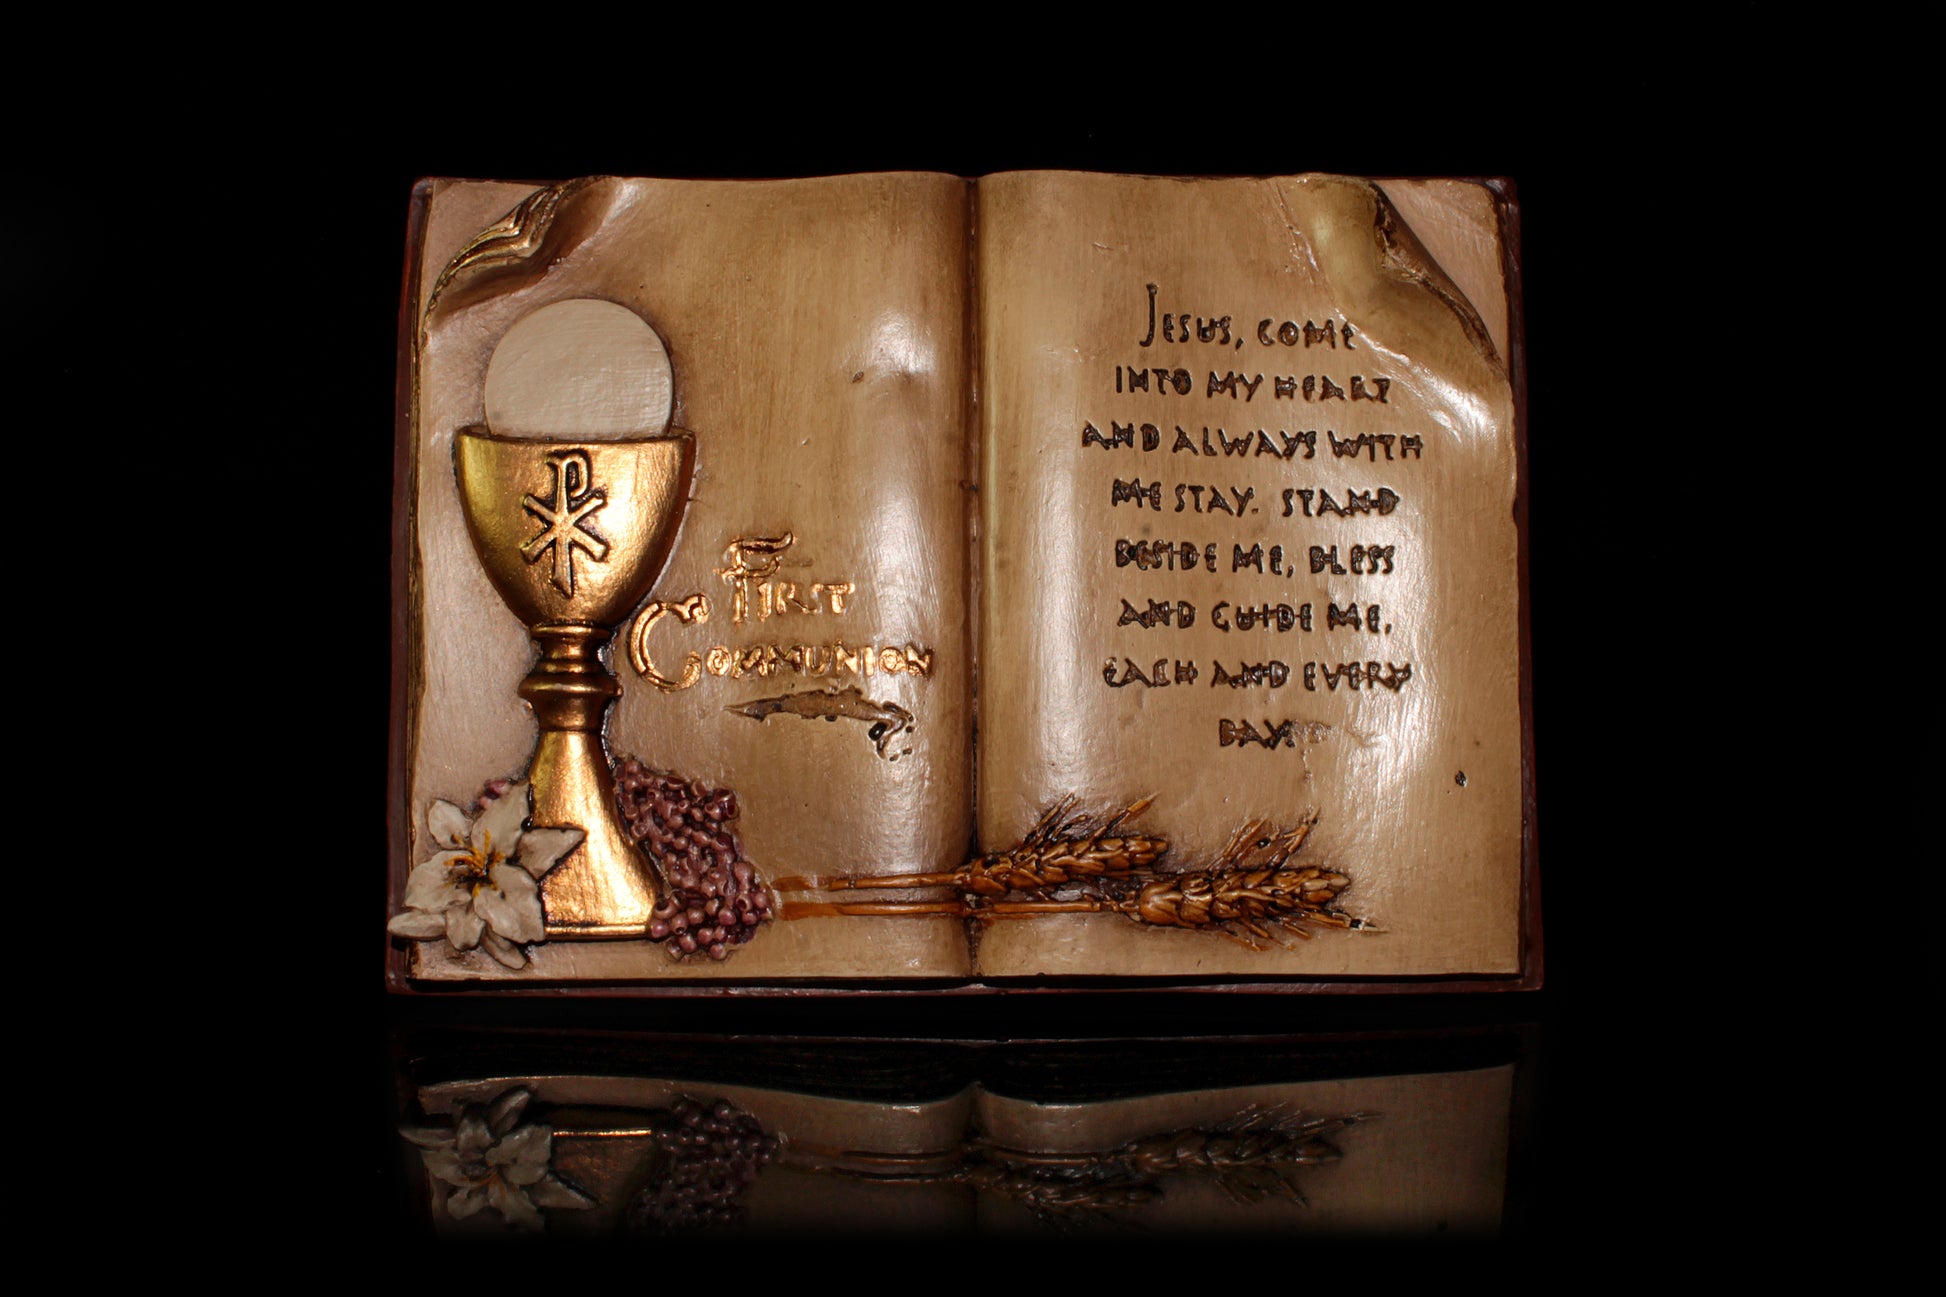 First
Communion
Jesus, come
into my heart
and always with
me stay. Stand
beside me, bless
and guide me,
each and every
day.